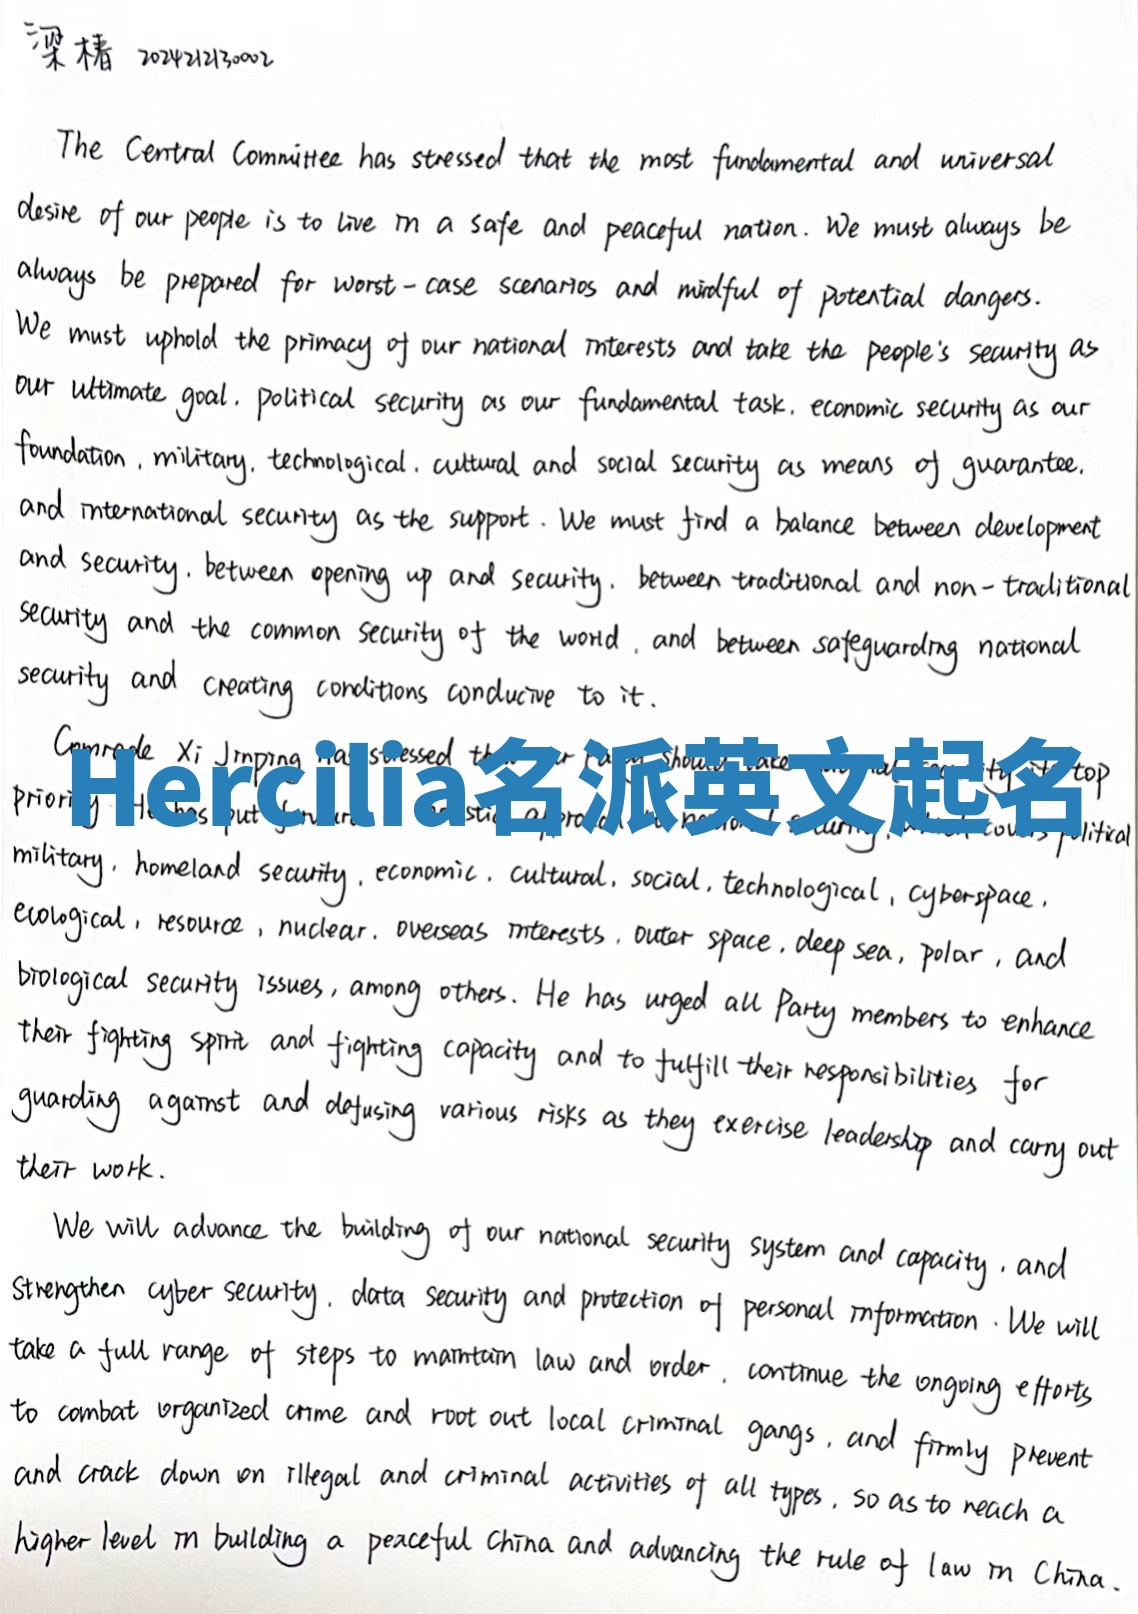 梁椿 2024212130002
The Central Committee has stressed that the most fundamental and universal
desire of our people is to live in a safe and peaceful nation. We must always be
always be prepared for worst-case scenarios and mindful of potential dangers.
We must uphold the primacy of our national interests and take the people's security as
our ultimate goal, political security as our fundamental task, economic security as our
foundation, military, technological, cultural and social security as means of guarantee,
and international security as the support. We must find a balance between development
and security, between opening up and security, between traditional and non-traditional
security and the common security of the world, and between safeguarding national
security and creating conditions conducive to it.
Comrade Xi Jinping has stressed top
Hercilia名派英文起名
priority put covers political
military, homeland security, economic, cultural, social, technological, cyberspace,
ecological, resource, nuclear, overseas interests, outer space, deep sea, polar, and
biological security issues, among others. He has urged all Party members to enhance
their fighting spirit and fighting capacity and to fulfill their responsibilities for
guarding against and defusing various risks as they exercise leadership and carry out
their work.
We will advance the building of our national security system and capacity, and
strengthen cyber security, data security and protection of personal information. We will
take a full range of steps to maintain law and order, continue the ongoing efforts
to combat organized crime and root out local criminal gangs, and firmly prevent
and crack down on illegal and criminal activities of all types, so as to reach a
higher level in building a peaceful China and advancing the rule of law in China.